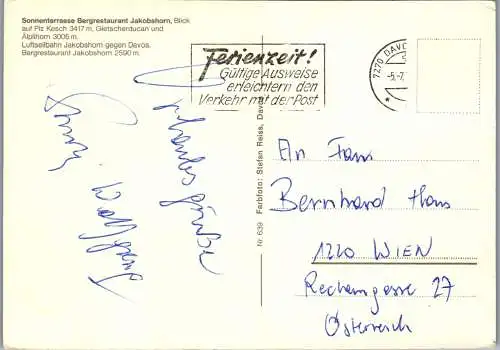 Sonnenterrasse Bergrestaurant Jakobshorn, Blick
auf Piz Kesch 3417 m, Gletscherducan und
Älplihorn 3006 m.
Luftseilbahn Jakobshorn gegen Davos.
Bergrestaurant Jakobshorn 2590 m.
Ferienzeit!
Gültige Ausweise
erleichtern den
Verkehr mit der Post
7270 DAVO
-5.-7.
An Fam
Bernhard Hans
1220 WIEN
Rechengasse 27
Österreich
Nr. 639 Farbfoto: Stefan Reiss, Dav
Wolfgang